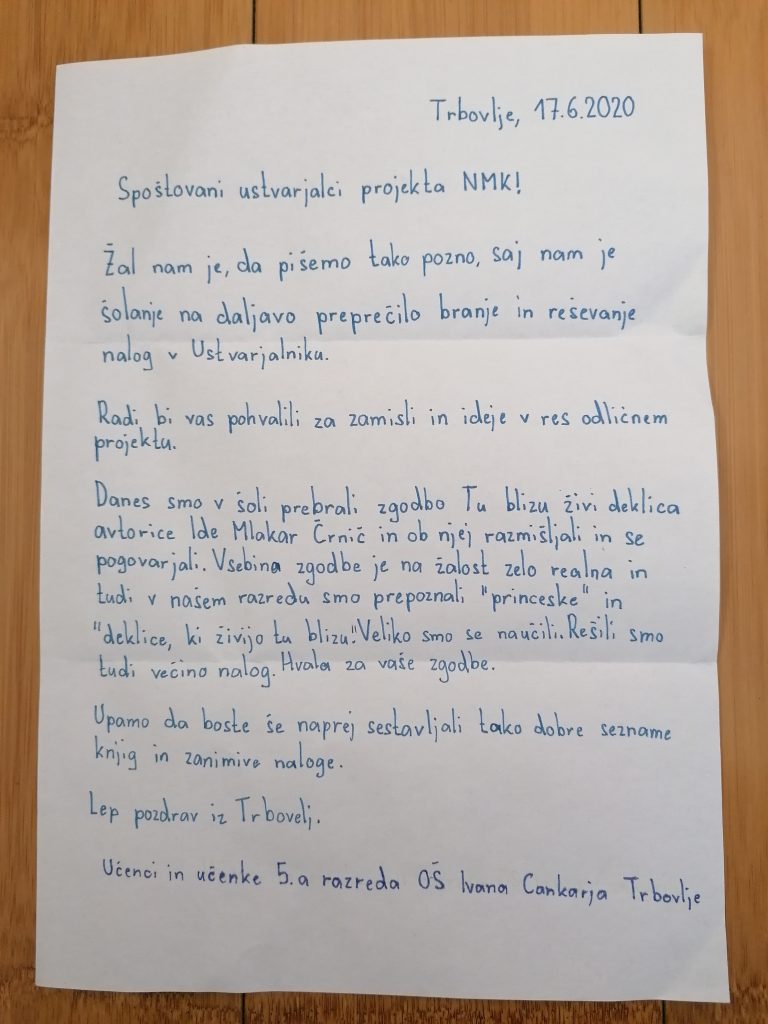 Trbovlje, 17.6.2020
Spoštovani ustvarjalci projekta NMK!
Žal nam je, da pišemo tako pozno, saj nam je
šolanje na daljavo preprečilo branje in reševanje
nalog v Ustvarjalniku.
Radi bi vas pohvalili za zamisli in ideje v res odličnem
projektu.
Danes smo v šoli prebrali zgodbo Tu blizu živi deklica
avtorice Ide Mlakar Črnič in ob njej razmišljali in se
pogovarjali. Vsebina zgodbe je na žalost zelo realna in
tudi v našem razredu smo prepoznali "princeske" in
"deklice, ki živijo tu blizu". Veliko smo se naučili. Rešili smo
tudi večino nalog. Hvala za vaše zgodbe.
Upamo da boste še naprej sestavljali tako dobre sezname
knjig in zanimive naloge.
Lep pozdrav iz Trbovelj.
Učenci in učenke 5.a razreda OŠ Ivana Cankarja Trbovlje